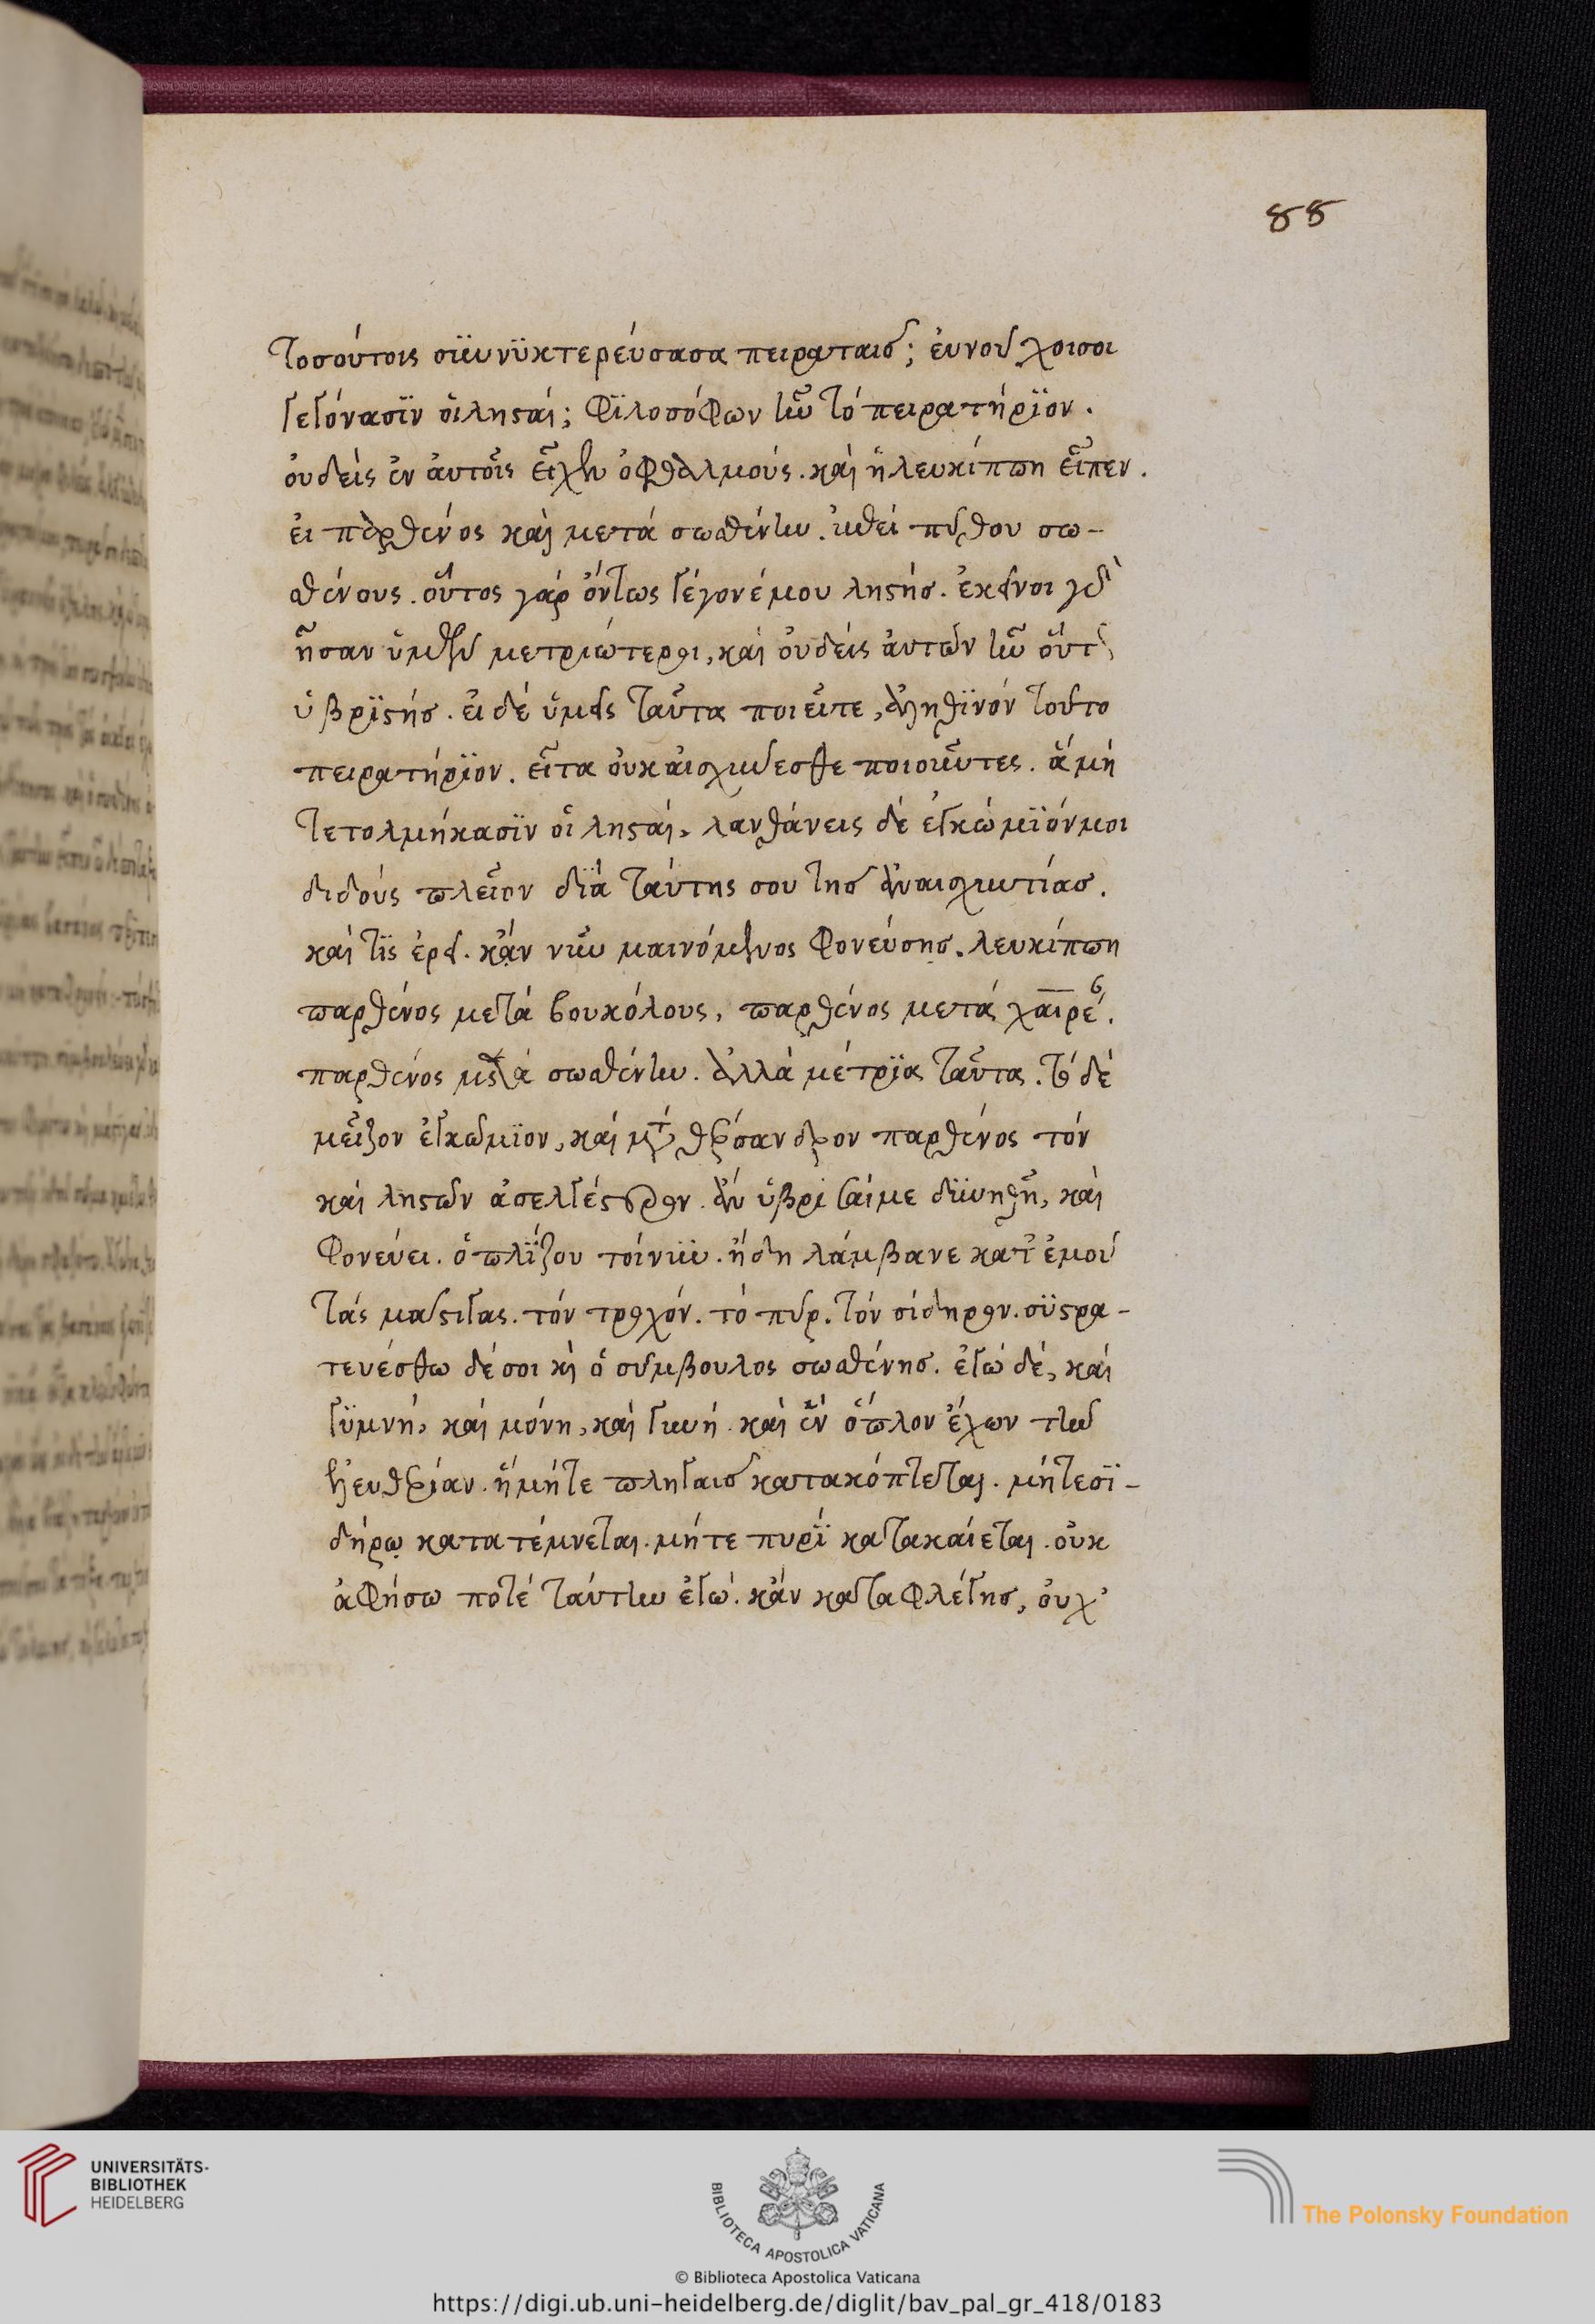 88
τοσούτοις συννυκτερεύσασα πειραταῖς; εὐνοῦχοί σοι
γεγόνασϊν οἱ λῃσταί; φϊλοσόφων ἦν τὸ πειρατήρϊον.
οὐδεὶς ἐν αὐτοῖς εἶχεν ὀφθαλμούς. καὶ ἡ λευκίππη εἶπεν.
εἰ παρθένος καὶ μετὰ σωσθένην. ἐπεὶ πύθου σω-
σθένους. οὗτος γὰρ ὄντως γέγονέ μου λῃστής. ἐκεῖνοι γὰρ
ἦσαν ὑμῶν μετριώτεροι, καὶ οὐδεὶς αὐτῶν ἦν οὕτως
ὑβρϊστής. εἰ δὲ ὑμεῖς ταῦτα ποιεῖτε, ἀληθϊνὸν τοῦτο
πειρατήρϊον. εἶτα οὐκ αἰσχύνεσθε ποιοῦντες. ἃ μὴ
τετολμήκασϊν οἱ λῃσταί. λανθάνεις δὲ ἐγκώμϊόν μοι
διδοὺς πλεῖον δϊὰ ταύτης σου τῆς ἀναισχυντίας.
καὶ τϊς ἐρεῖ. κἂν νῦν μαινόμενος φονεύσῃς. λευκίππη
παρθένος μετὰ βουκόλους, παρθένος μετὰ χαιρέ.
παρθένος μετὰ σωσθένην. ἀλλὰ μέτρϊα ταῦτα. τὸ δὲ
μεῖζον ἐγκώμϊον, καὶ μετὰ θέρσανδρον παρθένος τὸν
καὶ λῃστῶν ἀσελγέστερον. ἂν ὑβρίσαι με δυνηθῇ, καὶ
φονεύει. ὁπλϊζου τοίνυν. ἤδη λάμβανε κατ' ἐμοῦ
τὰς μάστιγας. τὸν τροχόν. τὸ πῦρ. τὸν σίδηρον. συστρα-
τευέσθω δέ σοι καὶ ὁ σύμβουλος σωσθένης. ἐγὼ δὲ, καὶ
γϋμνὴ, καὶ μόνη, καὶ γυνή. καὶ ἓν ὅπλον ἔχων τὴν
ἐλευθερίαν. ἣ μήτε πληγαῖς κατακόπτεται. μήτε σϊ-
δήρῳ κατατέμνεται. μήτε πυρϊ κατακαίεται. οὐκ
ἀφήσω ποτὲ ταύτην ἐγώ. κἂν καταφλέγῃς, οὐχ'
UNIVERSITÄTS-
BIBLIOTHEK
HEIDELBERG
BIBLIOTECA APOSTOLICA VATICANA
The Polonsky Foundation
© Biblioteca Apostolica Vaticana
https://digi.ub.uni-heidelberg.de/diglit/bav_pal_gr_418/0183